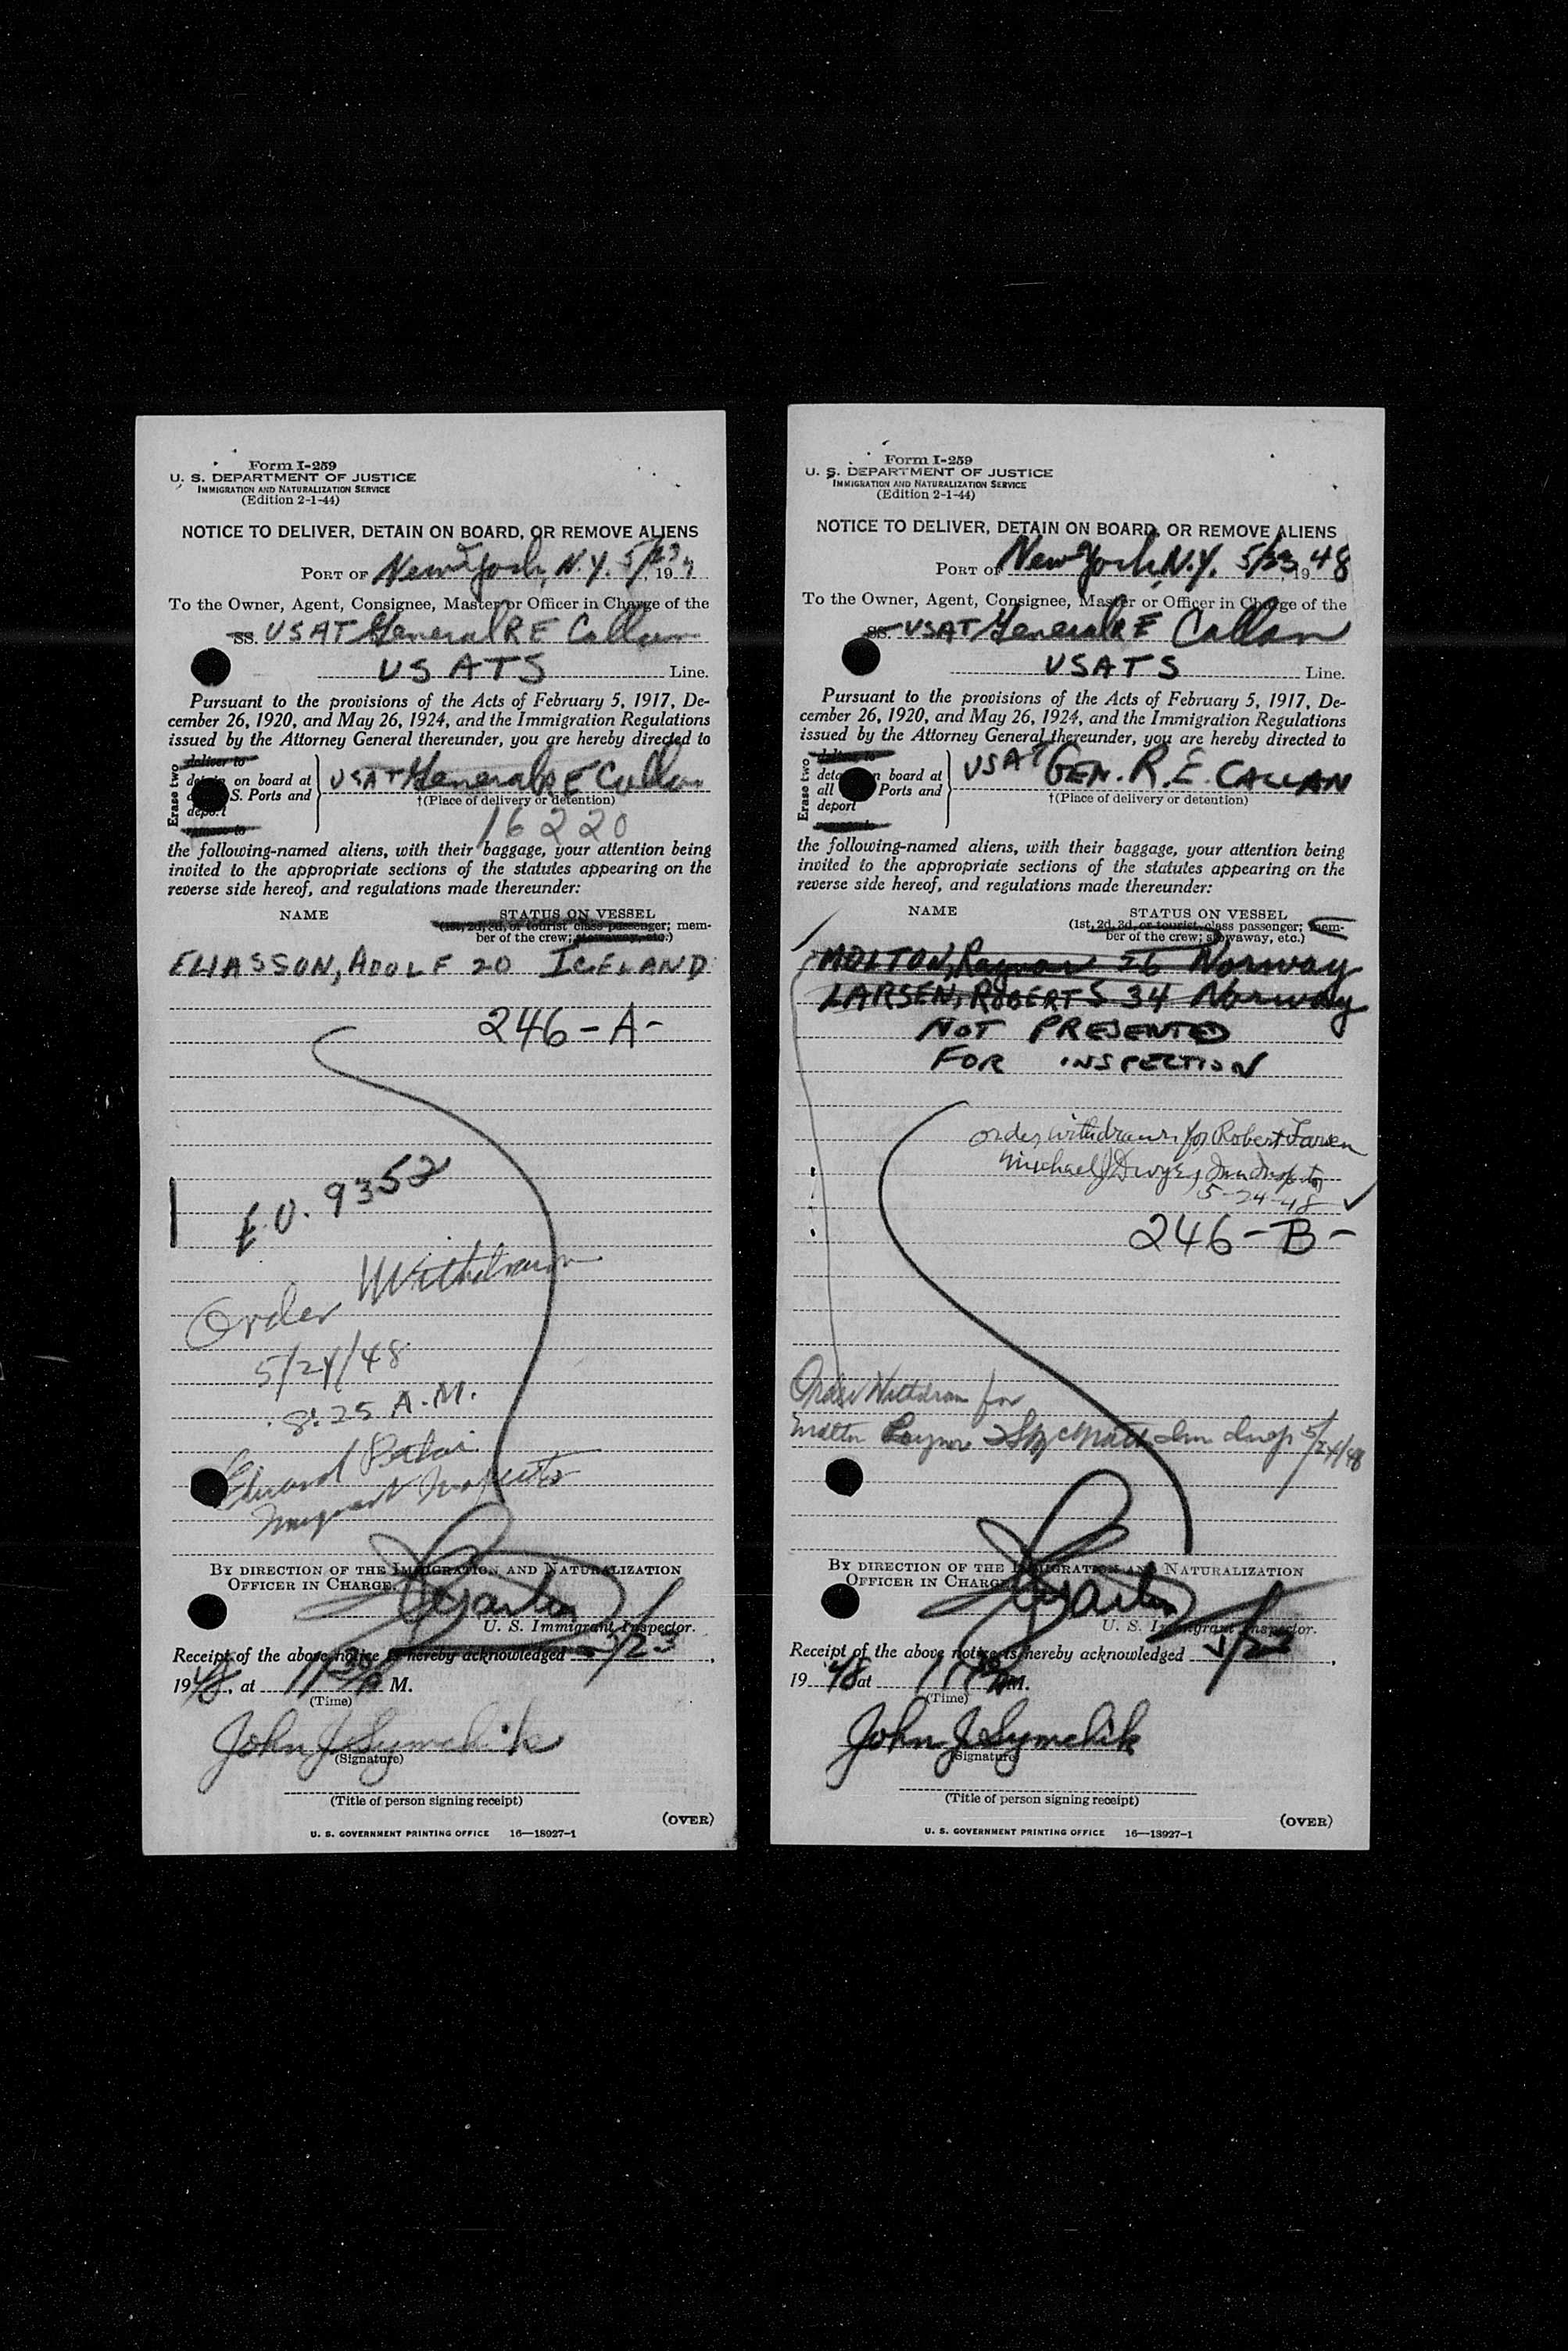 Form I-259
U. S. DEPARTMENT OF JUSTICE
IMMIGRATION AND NATURALIZATION SERVICE
(Edition 2-1-44)
NOTICE TO DELIVER, DETAIN ON BOARD, OR REMOVE ALIENS
PORT OF New York, N.Y. 5/23, 19
To the Owner, Agent, Consignee, Master or Officer in Charge of the
SS. USAT General R E Callan
USATS Line.
Pursuant to the provisions of the Acts of February 5, 1917, De-
cember 26, 1920, and May 26, 1924, and the Immigration Regulations
issued by the Attorney General thereunder, you are hereby directed to
Erase two
deliver to
detain on board at
S. Ports and
deport
remove to
USAT General R E Callan
†(Place of delivery or detention)
16220
the following-named aliens, with their baggage, your attention being
invited to the appropriate sections of the statutes appearing on the
reverse side hereof, and regulations made thereunder:
NAME STATUS ON VESSEL
(1st, 2d, 3d, or tourist class passenger; mem-
ber of the crew; stowaway, etc.)
ELIASSON, ADOLF 20 ICELAND
246-A-
E.O. 9352
Order Withdrawn
5/24/48
8:25 A.M.
Edward
Immigrant Inspector
BY DIRECTION OF THE IMMIGRATION AND NATURALIZATION
OFFICER IN CHARGE.
U. S. Immigrant Inspector.
Receipt of the above notice is hereby acknowledged 5/23,
1948, at 11 30 A M.
(Time)
John J Symchik
(Signature)
(Title of person signing receipt)
(OVER)
U. S. GOVERNMENT PRINTING OFFICE 16—18927-1
Form I-259
U. S. DEPARTMENT OF JUSTICE
IMMIGRATION AND NATURALIZATION SERVICE
(Edition 2-1-44)
NOTICE TO DELIVER, DETAIN ON BOARD, OR REMOVE ALIENS
PORT OF New York, N.Y. 5/23, 1948
To the Owner, Agent, Consignee, Master or Officer in Charge of the
SS. USAT General R E Callan
USATS Line.
Pursuant to the provisions of the Acts of February 5, 1917, De-
cember 26, 1920, and May 26, 1924, and the Immigration Regulations
issued by the Attorney General thereunder, you are hereby directed to
Erase two
deliver to
detain on board at
all Ports and
deport
remove to
USAT GEN. R. E. CALLAN
†(Place of delivery or detention)
the following-named aliens, with their baggage, your attention being
invited to the appropriate sections of the statutes appearing on the
reverse side hereof, and regulations made thereunder:
NAME STATUS ON VESSEL
(1st, 2d, 3d, or tourist class passenger; mem-
ber of the crew; stowaway, etc.)
MOLTON, Ragnar 56 Norway
LARSEN, ROBERT S 34 Norway
NOT PRESENTED
FOR INSPECTION
order withdrawn for Robert Larsen
Michael J Dwyer, Imm Inspector
5-24-48 ✓
246-B-
Order Withdrawn for
Imm Insp 5/24/48
BY DIRECTION OF THE IMMIGRATION AND NATURALIZATION
OFFICER IN CHARGE
U. S. Immigrant Inspector.
Receipt of the above notice is hereby acknowledged 5/23,
1948 at 11 30 A M.
(Time)
John J Symchik
(Signature)
(Title of person signing receipt)
(OVER)
U. S. GOVERNMENT PRINTING OFFICE 16—18927-1